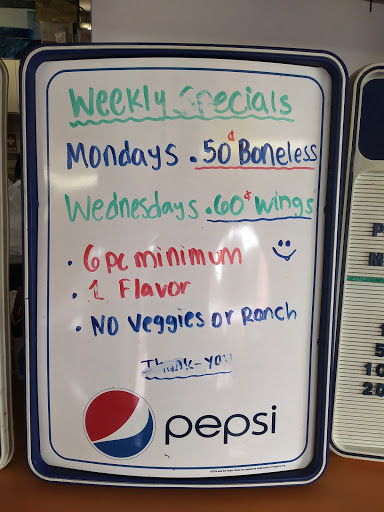 Weekly Specials
Mondays .50¢ Boneless
Wednesdays .60¢ wings
• 6pc minimum
• 1 Flavor
• NO Veggies or Ranch
Thank-you
pepsi